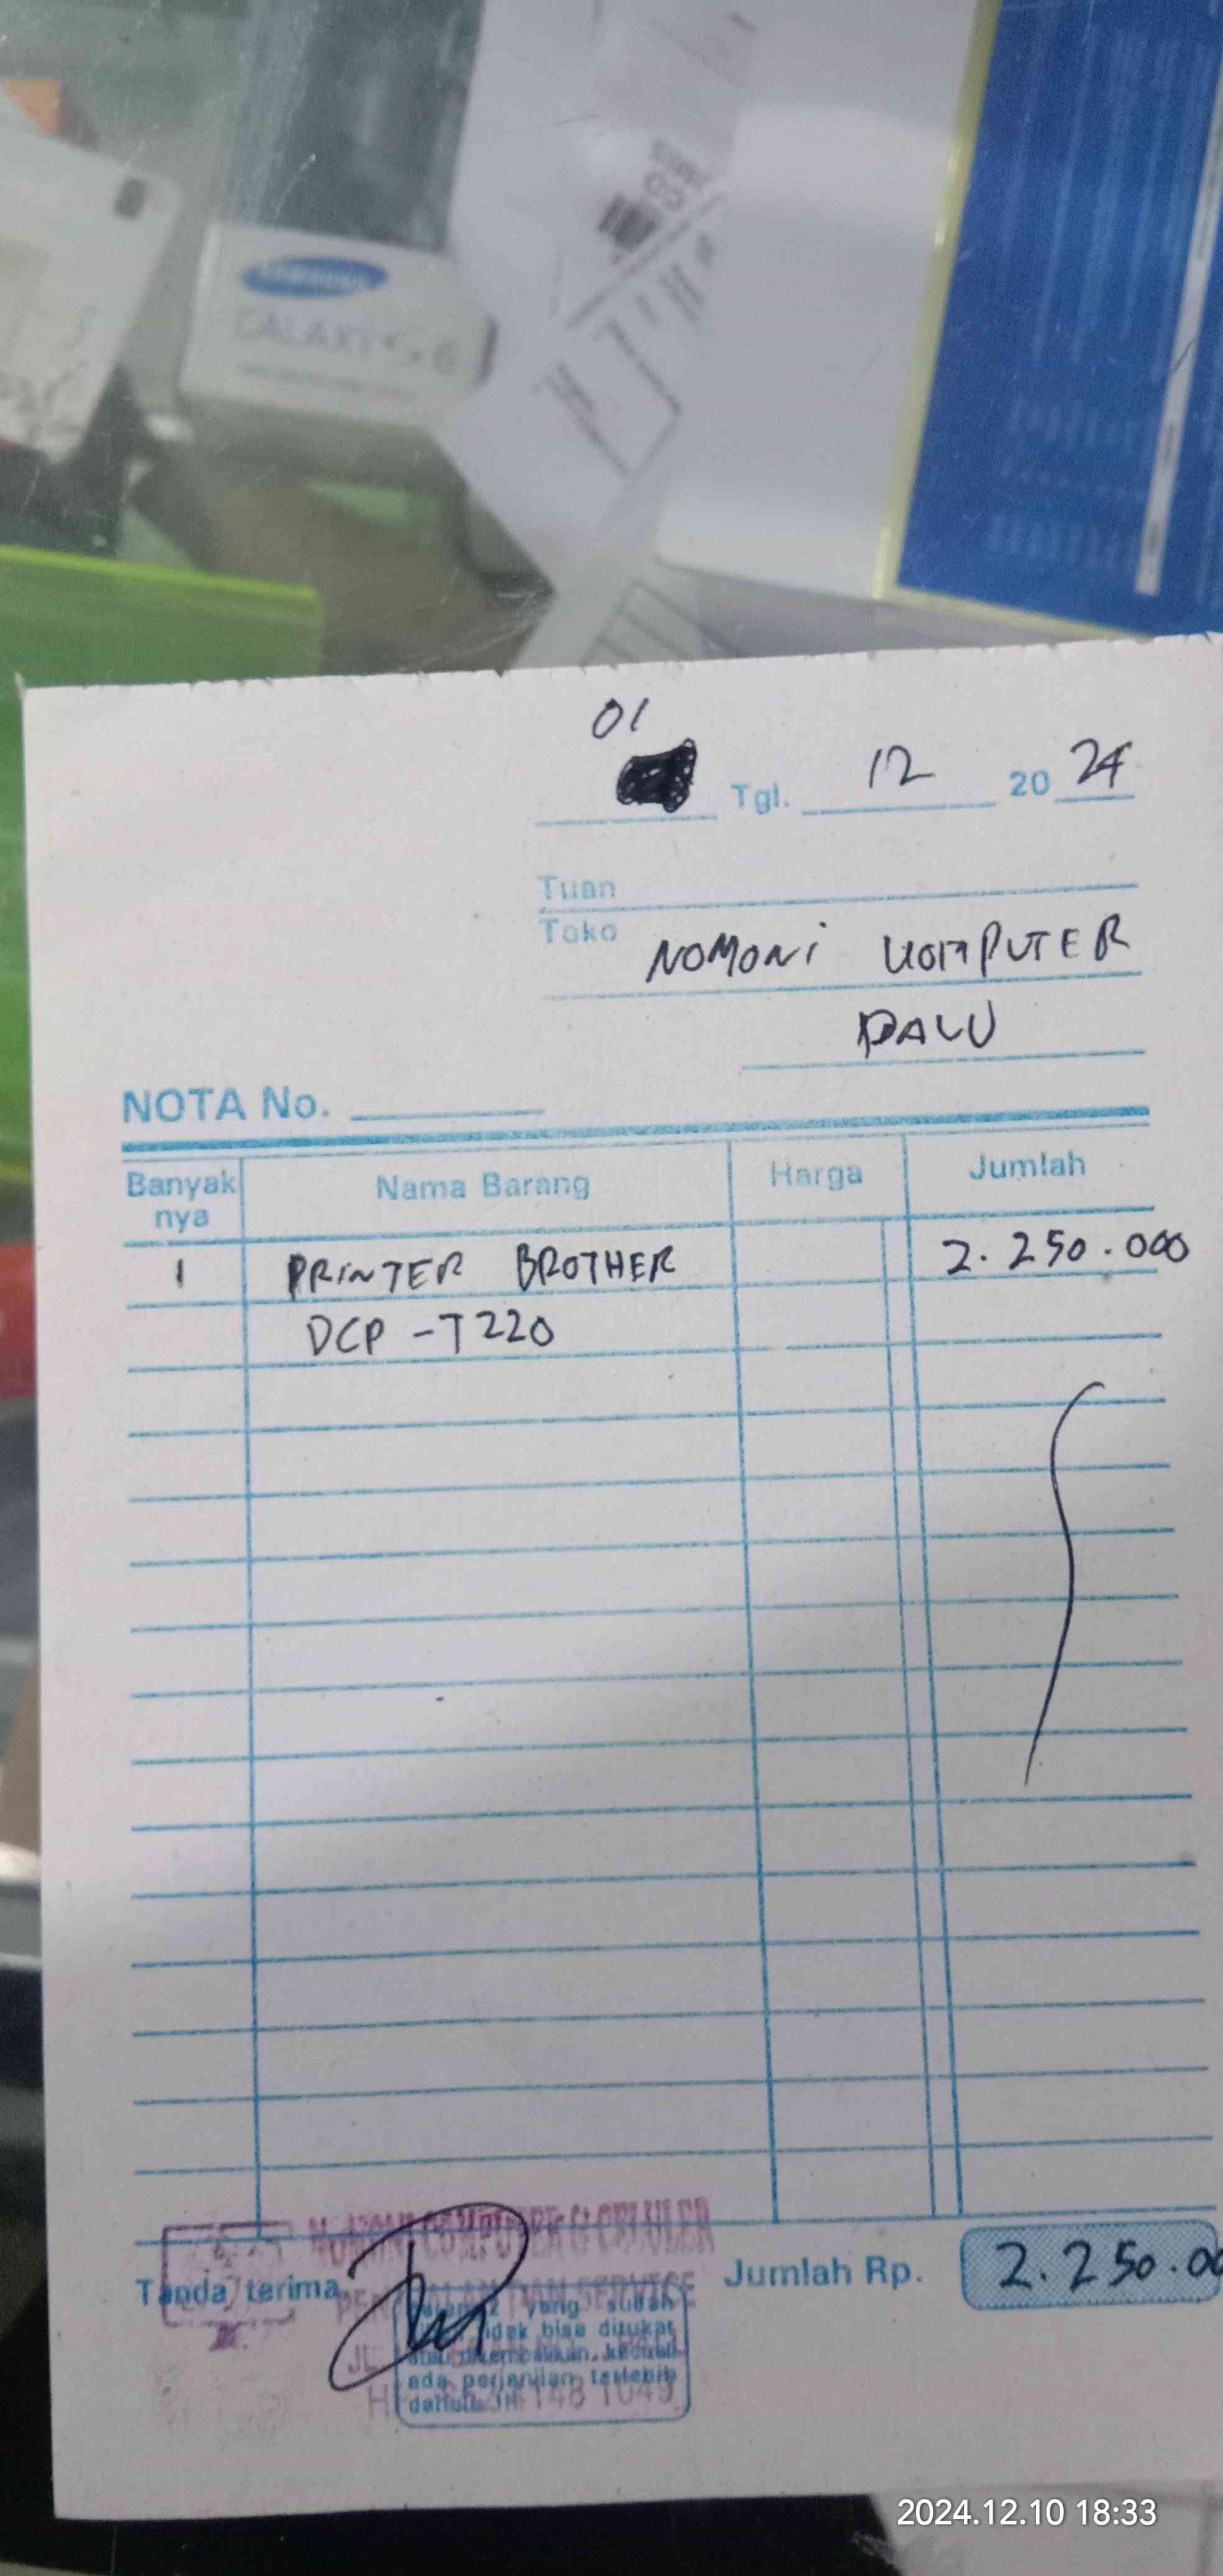 SAMSUNG
GALAXY S 6
01
Tgl. 12 20 24
Tuan
Toko NOMONi KOMPUTER
PALU
NOTA No.
Banyak nya Nama Barang Harga Jumlah
1 PRINTER BROTHER 2.250.000
DCP-T220
NOMONI COMPUTER & CELULER
Tanda terima Jumlah Rp. 2.250.00
DAN SERVICE
yang sudah
tidak bisa ditukar
atau dikembalikan, kecuali
ada perjanjian terlebih
dahulu
2024.12.10 18:33